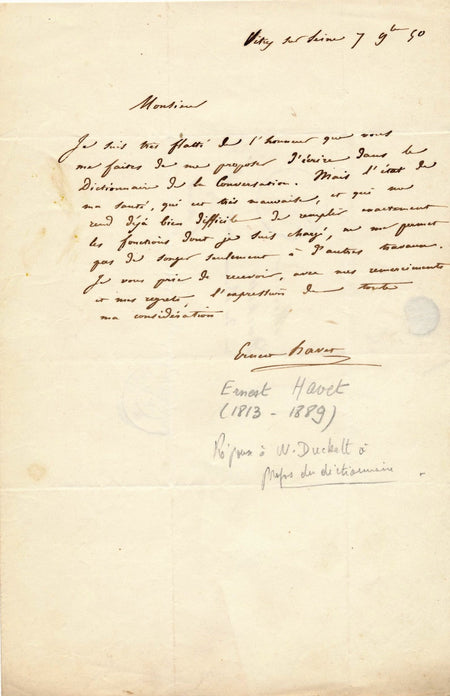 Vitry sur Seine 7 9bre 50
Monsieur
Je suis très flatté de l'honneur que vous
me faites de me proposer d'écrire dans le
Dictionnaire de la Conversation. Mais l'état de
ma santé, qui est très mauvaise, et qui me
rend déjà bien difficile de remplir exactement
les fonctions dont je suis chargé, ne me permet
pas de songer seulement à d'autres travaux.
Je vous prie de recevoir, avec mes remerciements
et mes regrets, l'expression de toute
ma considération
Ernest Havet
Ernest Havet
(1813 - 1889)
Réponse à W. Duckett à
propos du dictionnaire